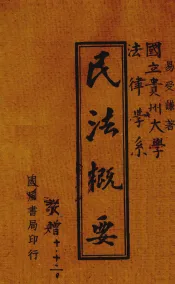 易受謙著
國立貴州大學
法律學系
民法概要
敬贈
國彊書局印行